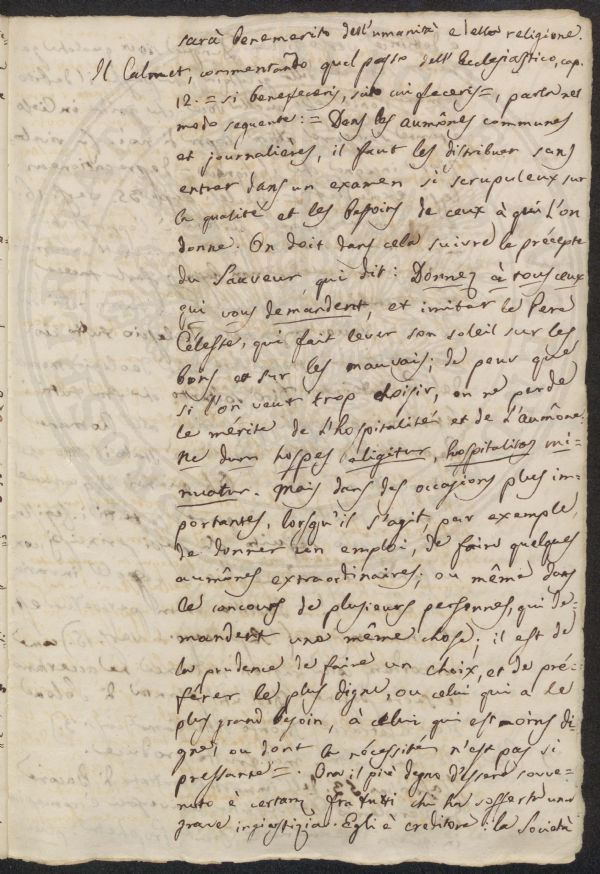 sarà benemerito dell'umanità e della religione.
Il Calmet, commentando quel passo dell'Ecclesiastico, cap.
12. = si benefeceris, scito cui feceris =, parla nel
modo seguente: = Dans les aumônes communes
et journalières, il faut les distribuer sans
entrer dans un examen si scrupuleux sur
la qualité et les besoins de ceux à qui l'on
donne. On doit dans cela suivre le précepte
du Sauveur, qui dit: Donnez à tous ceux
qui vous demandent, et imiter le Pere
Céleste, qui fait lever son soleil sur les
bons et sur les mauvais; de peur que
si l'on veut trop choisir, on ne perde
le mérite de l'hospitalité et de l'aumône:
Ne dum hospes eligitur, hospitalitas mi-
nuatur. Mais dans des occasions plus im-
portantes, lorsqu'il s'agit, par exemple,
de donner un emploi, de faire quelques
aumônes extraordinaires; ou même dans
le concours de plusieurs personnes, qui de-
mandent une même chose; il est de
la prudence de faire un choix, et de pré-
férer le plus digne, ou celui qui a le
plus grand besoin, à celui qui est moins di-
gne, ou dont la nécessité n'est pas si
pressante =. Ora il più degno d'essere sovve-
nuto è certam. fra tutti chi ha sofferto una
grave ingiustizia. Egli è creditore: la Società